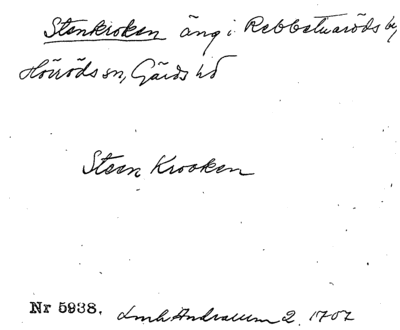 Stenkroken äng i Rebbetuaröds by
Hörröds sn, Gärds hd
Steen Krooken
Nr 5938. Lmh Andrarum 2 1707